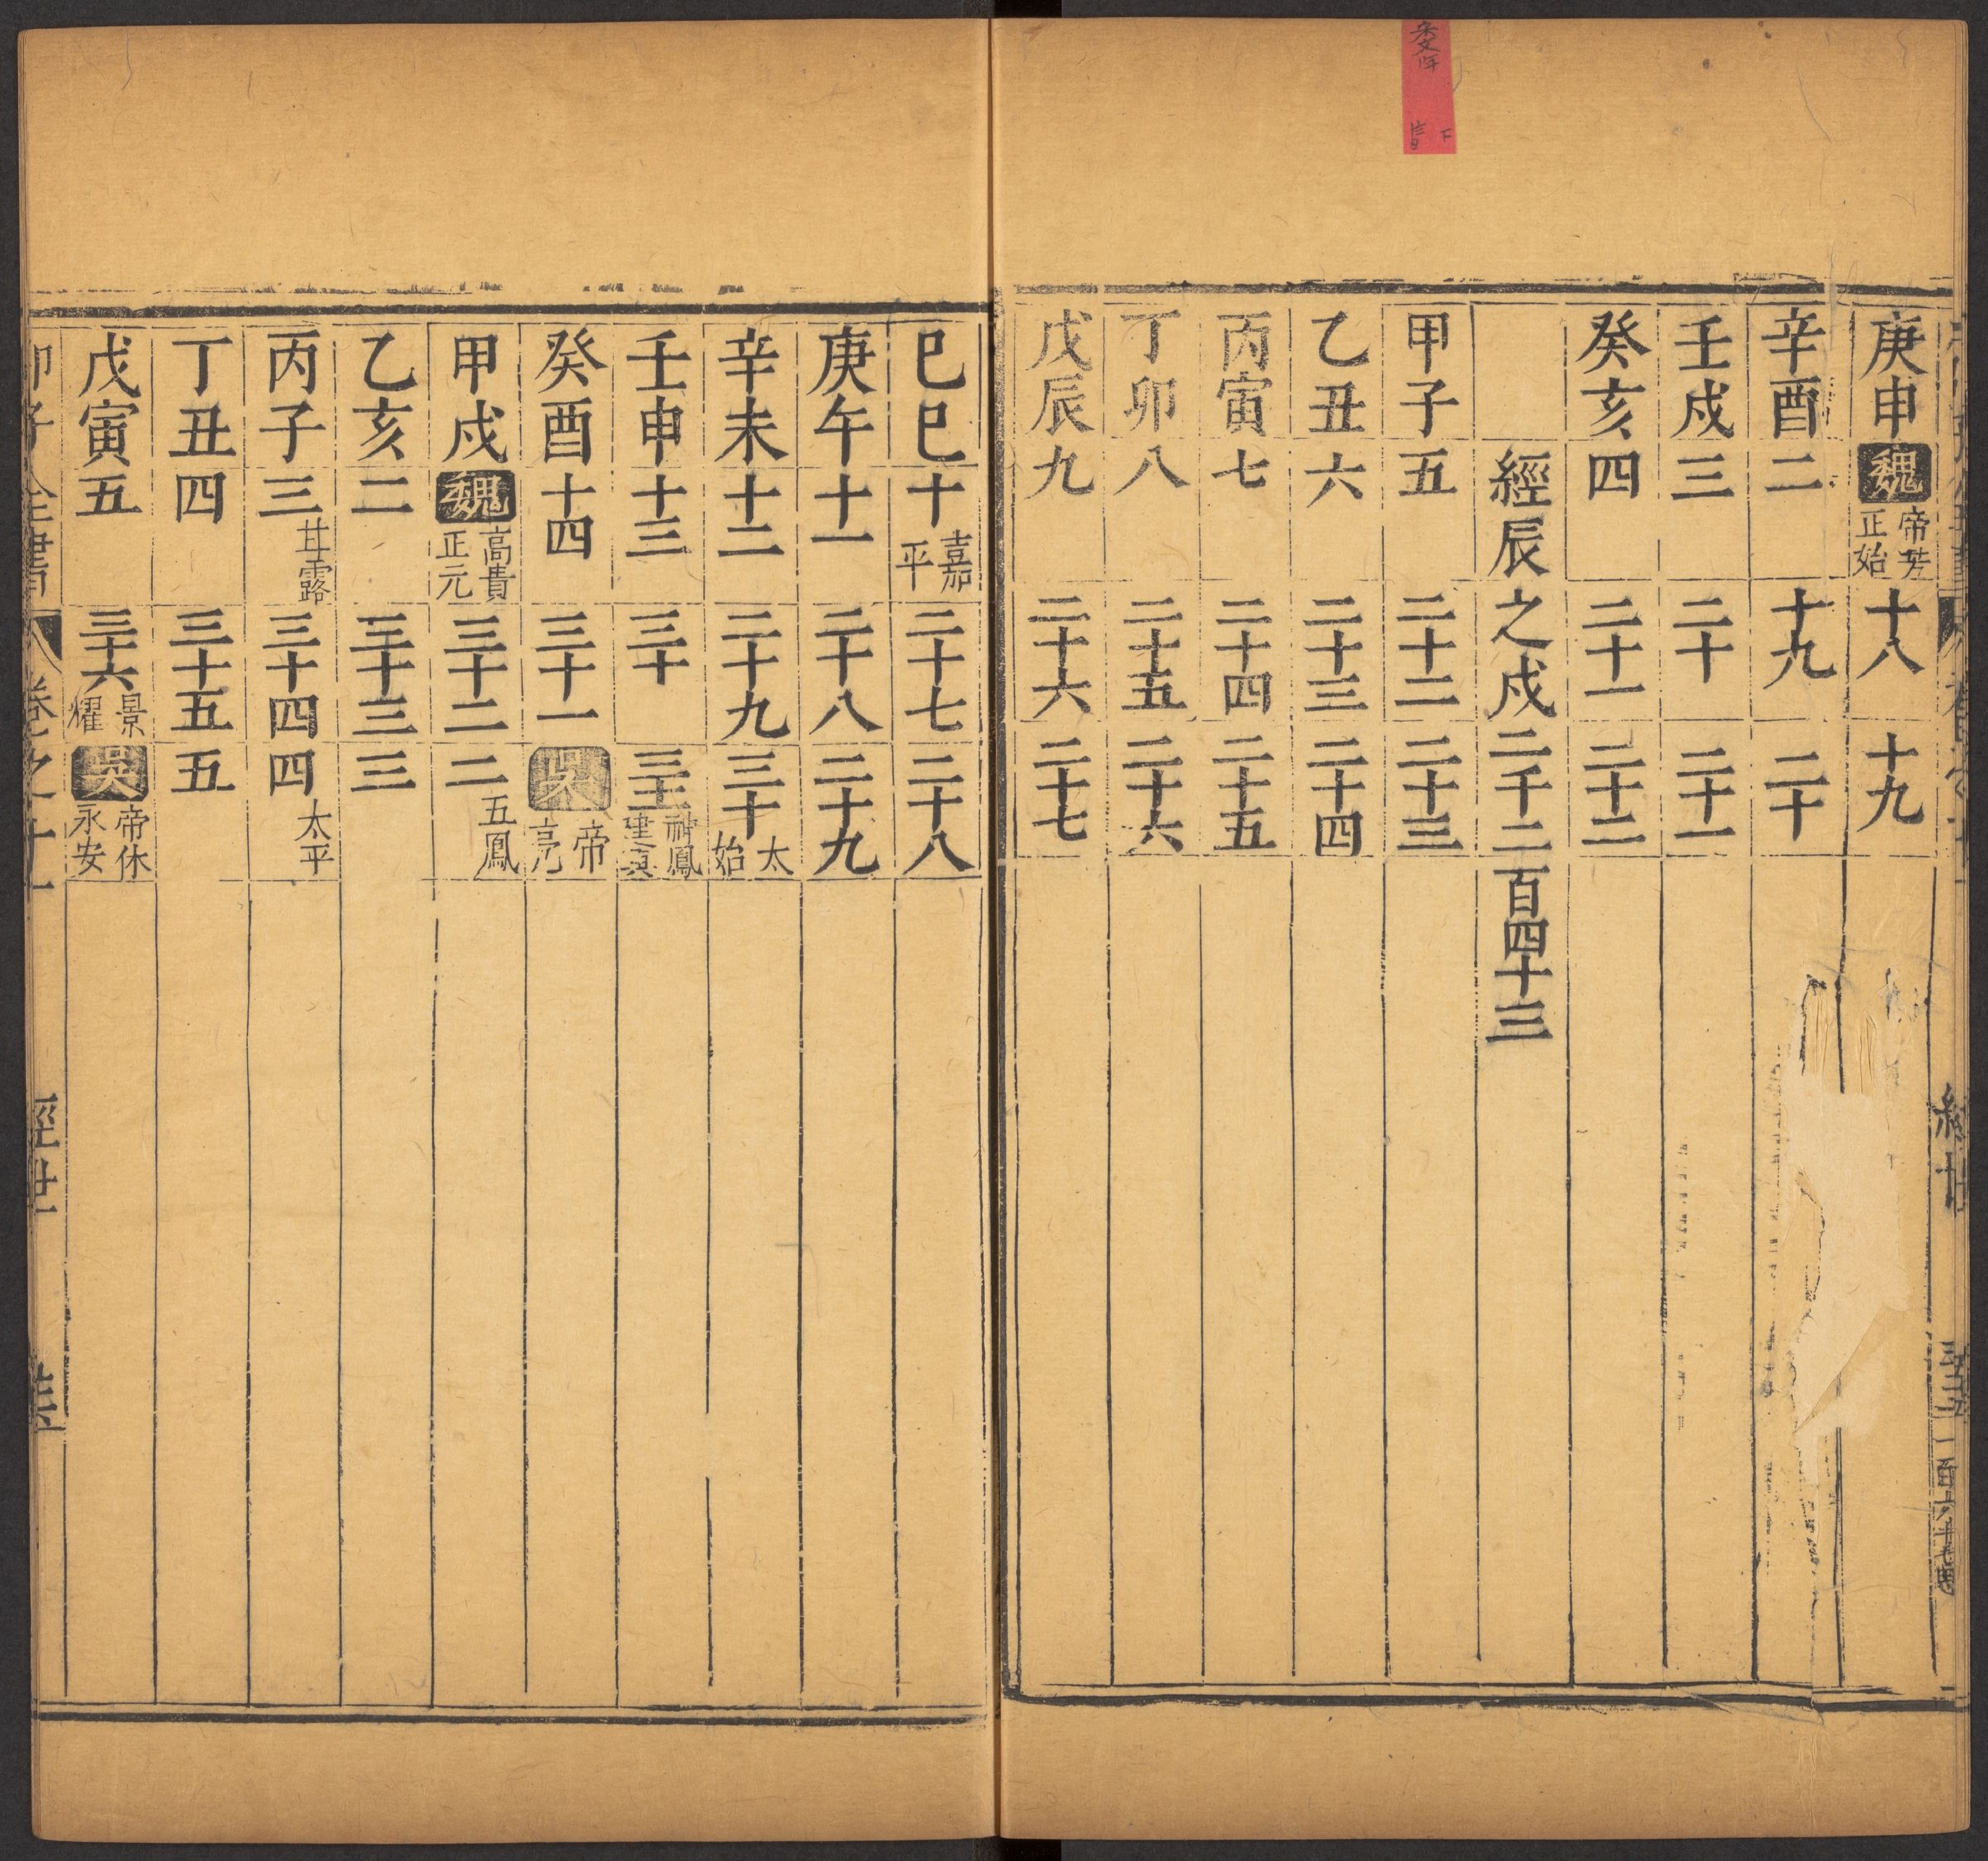 庚申魏帝芳正始十八十九
辛酉二十九二十
壬戌三二十二十一
癸亥四二十一二十二
經辰之戌二千二百四十三
甲子五二十二二十三
乙丑六二十三二十四
丙寅七二十四二十五
丁卯八二十五二十六
戊辰九二十六二十七
巳巳十嘉平二十七二十八
庚午十一二十八二十九
辛未十二二十九三十太始
壬申十三三十三十一神鳳建
癸酉十四三十一吳帝亮
甲戌魏高貴正元三十二二五鳳
乙亥二三十三三
丙子三甘露三十四四太平
丁丑四三十五五
戊寅五三十六景耀吳帝休永安
邵子全書 卷之二十一 經世